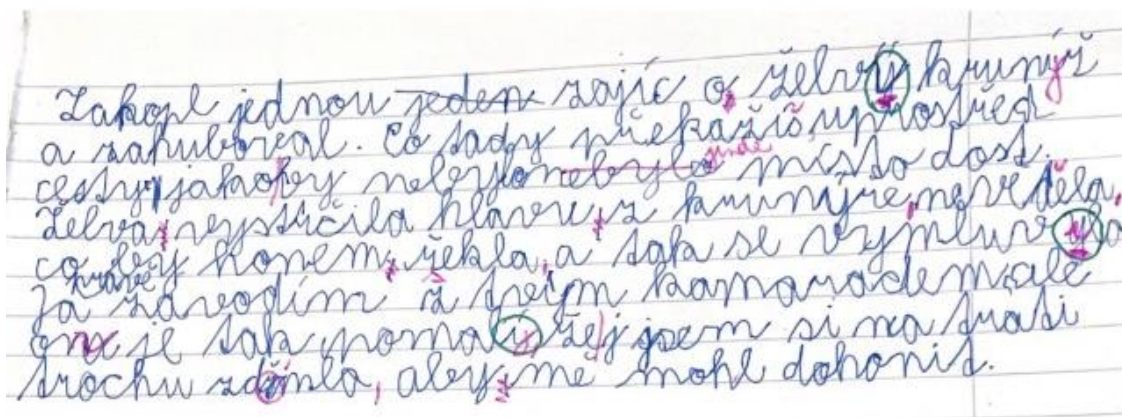 Zakopl jednou jeden zajíc o želvý krunýž
a zahuboval. Co tady překažíš uprostřed
cesty, jakoby nebylo jinde místo dost.
Želva vystrčila hlavu z krunýře, nevěděla,
co by honem řekla, a tak se vymluvyla
Já zdravě závodím z tvým kamarádem, ale
on je tak pomalí, že jsem si na trati
trochu zdřímla, aby mě mohl dohonit.